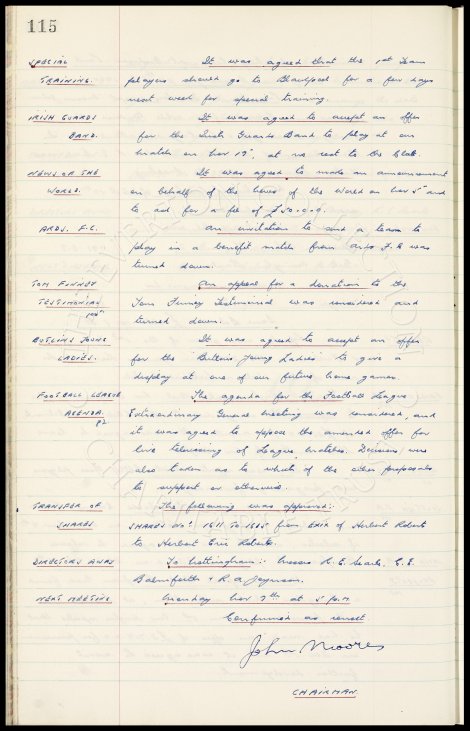 115
SPECIAL It was agreed that the 1st Team
TRAINING. players should go to Blackpool for a few days
next week for special training.
IRISH GUARDS It was agreed to accept an offer
BAND. for the Irish Guards Band to play at our
match on Nov 19th, at no cost to the Club.
NEWS OF THE It was agreed to make an announcement
WORLD. on behalf of the News of the World on Nov 5th and
to ask for a fee of £50.0.0.
ARDS. F.C. An invitation to send a team to
play in a benefit match from Ards F.C. was
turned down.
TOM FINNEY An appeal for a donation to the
TESTIMONIAL Tom Finney Testimonial was considered and
turned down.
BUTLINS YOUNG It was agreed to accept an offer
LADIES. for the "Butlins Young Ladies" to give a
display at one of our future home games.
FOOTBALL LEAGUE The agenda for the Football League
AGENDA Extraordinary General Meeting was considered, and
it was agreed to oppose the amended offer for
live televising of League matches. Decisions were
also taken as to which of the other proposals
to support or otherwise.
TRANSFER OF The following was approved:-
SHARES SHARES Nos. 1611 To 1615 from Exix of Herbert Roberts
to Herbert Eric Roberts.
DIRECTORS AWAY To Nottingham:- Messrs R.E. Searle, C.E.
Balmforth & R.A. Joynson.
NEXT MEETING. Monday Nov 7th at 5 p.m.
Confirmed as correct
John Moores
CHAIRMAN